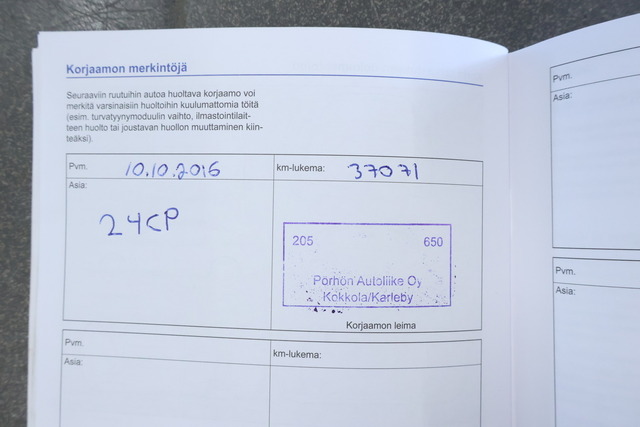 Korjaamon merkintöjä
Seuraaviin ruutuihin autoa huoltava korjaamo voi
merkitä varsinaisiin huoltoihin kuulumattomia töitä
(esim. turvatyynymoduulin vaihto, ilmastointilait-
teen huolto tai joustavan huollon muuttaminen kiin-
teäksi).
Pvm. 10.10.2016 km-lukema: 37071
Asia:
24CP
205 650
Pörhön Autoliike Oy
Kokkola/Karleby
Korjaamon leima
Pvm. km-lukema:
Asia:
Pvm.
Asia:
Pvm.
Asia: